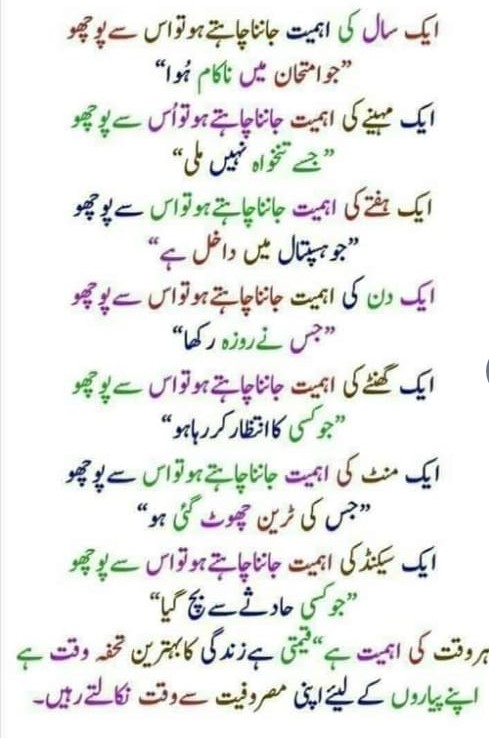 ایک سال کی اہمیت جاننا چاہتے ہو تو اس سے پوچھو
”جو امتحان میں ناکام ہُوا“
ایک مہینے کی اہمیت جاننا چاہتے ہو تو اُس سے پوچھو
”جسے تنخواہ نہیں ملی“
ایک ہفتے کی اہمیت جاننا چاہتے ہو تو اس سے پوچھو
”جو ہسپتال میں داخل ہے“
ایک دن کی اہمیت جاننا چاہتے ہو تو اس سے پوچھو
”جس نے روزہ رکھا“
ایک گھنٹے کی اہمیت جاننا چاہتے ہو تو اس سے پوچھو
”جو کسی کا انتظار کر رہا ہو“
ایک منٹ کی اہمیت جاننا چاہتے ہو تو اس سے پوچھو
”جس کی ٹرین چھوٹ گئی ہو“
ایک سیکنڈ کی اہمیت جاننا چاہتے ہو تو اس سے پوچھو
”جو کسی حادثے سے بچ گیا“
ہر وقت کی اہمیت ہے“ قیمتی ہے زندگی کا بہترین تحفہ وقت ہے
اپنے پیاروں کے لیئے اپنی مصروفیت سے وقت نکالتے رہیں۔